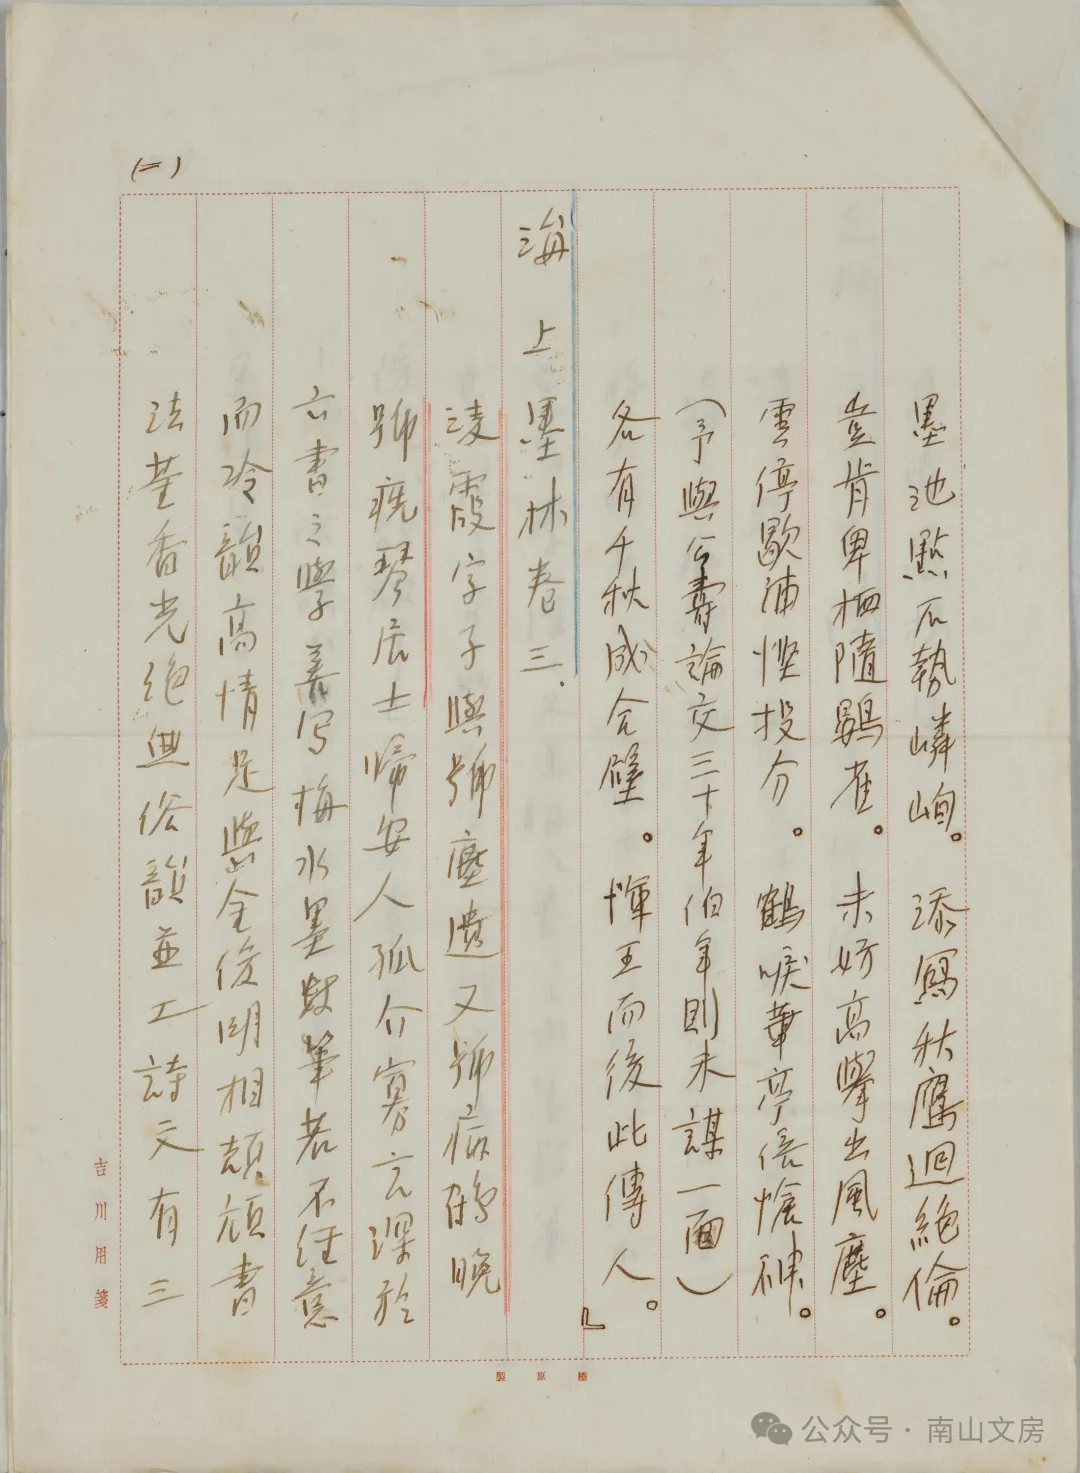 (二)
墨池點石勢嶙峋。添寫秋鷹迥絕倫。
豈肯卑栖隨鷃雀。未妨高舉出風塵。
雲停歇浦慳投分。鶴唳華亭倍愴神。
(予與公壽論交三十年伯年則未謀一面)
各有千秋成合璧。惲王而後此傳人。』
海上墨林卷三.
淩霞字子與號塵遺又號病鶴晚
號疣琴居士歸安人孤介寡言深於
六書之學善写梅水墨數筆若不經意
而冷韻高情足與金俊明相頡頏書
法堂香光絕無俗韻並工詩文有三
吉川用箋
榛原製
公众号·南山文房